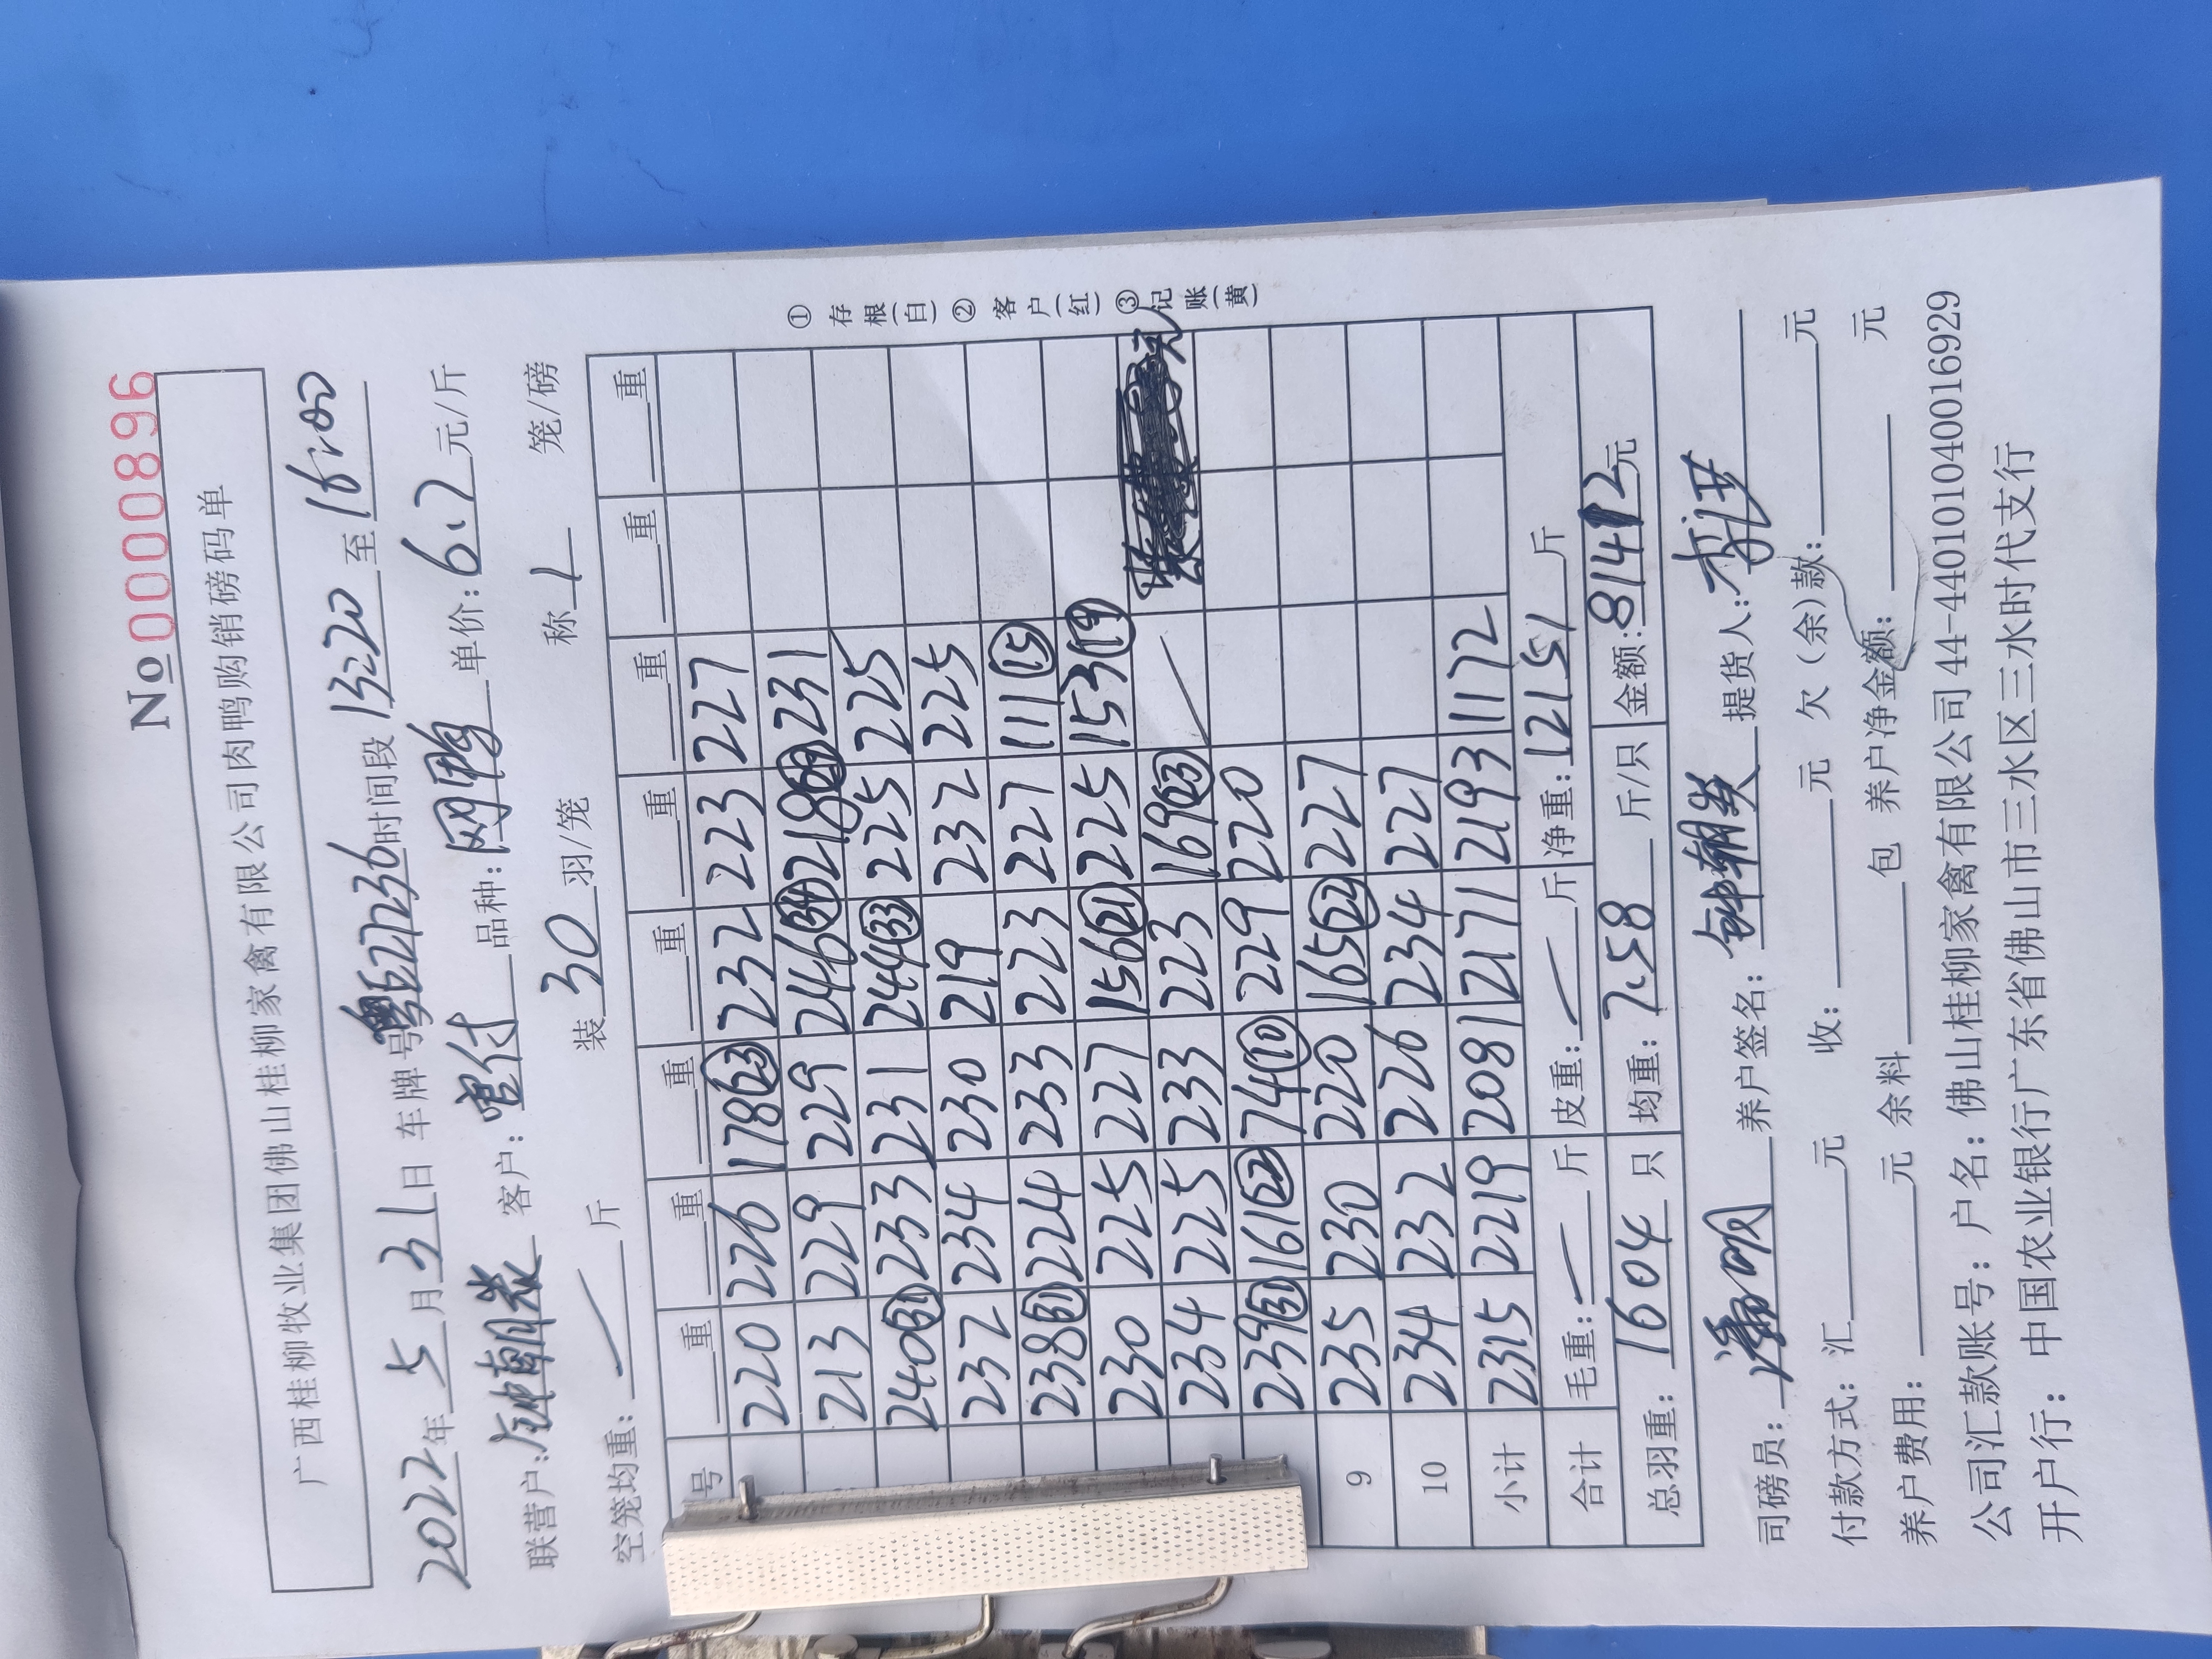 № 0000896
广西桂柳牧业集团佛山桂柳家禽有限公司肉鸭购销磅码单
2022年5月31日 车牌号粤 时间段13:20至16:00
联营户:钟朝 客户: 付 品种: 鸭 单价:6.7元/斤
空笼均重:/斤 装30羽/笼 称1笼/磅
号 重 重 重 重 重 重 重
220 226 178(23) 232 223 227
213 229 229 246(34) 218 231
240(31) 233 231 244(33) 225 225
237 234 230 219 232 225
238(31) 224 233 223 227 111(15)
230 225 227 156(21) 225 153(19)
234 225 233 223 169(23) /
239(31) 161(22) 74(10) 229 220
9 235 230 220 165(22) 227
10 234 232 226 234 227
小计 2315 2219 2081 2171 2193 1172
合计 毛重:/斤 皮重:/斤 净重:12151斤
总羽重:1604只 均重:7.58斤/只 金额:81412元
①存根(白)②客户(红)③记账(黄)
司磅员: 明 养户签名:钟朝 提货人:李
付款方式:汇 元 收: 元 欠(余)款: 元
养户费用: 元 余料 包 养户净金额: 元
公司汇款账号:户名:佛山桂柳家禽有限公司44-440101040016929
开户行:中国农业银行广东省佛山市三水区三水时代支行